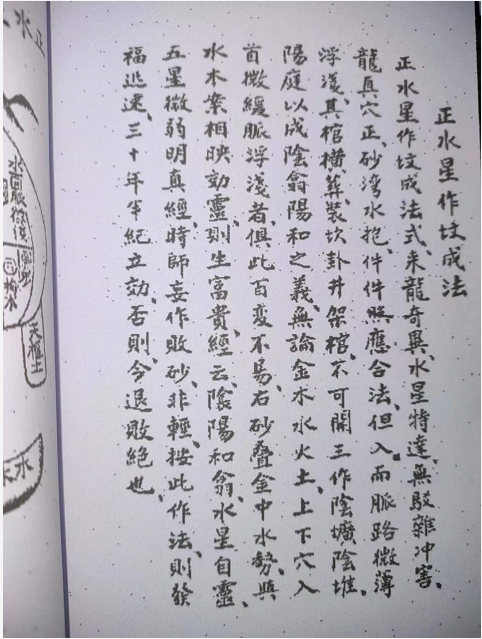 正水星作坟成法
正水星作坟成法式、來龍奇異、水星特達、無駁雜冲害、
龍真穴正、砂湾水抱、件件照應合法、但入而脈路微薄
浮淺、其棺横葬、装坎卦井架棺、不可開三作陰壙陰堆、
陽庭以成陰翕陽和之義、無論金木水火土、上下穴入
首微緩脈浮淺者、俱此百变不易、石砂叠金中水勢與
水木案相映効靈、則生富貴、經云、陰陽和翕、水星自靈、
五星微弱明真經時師妄作敗砂、非輕按此作法、則發
福迅速、三十年半紀立効、否則、令退敗絕也、
正水
天柱土